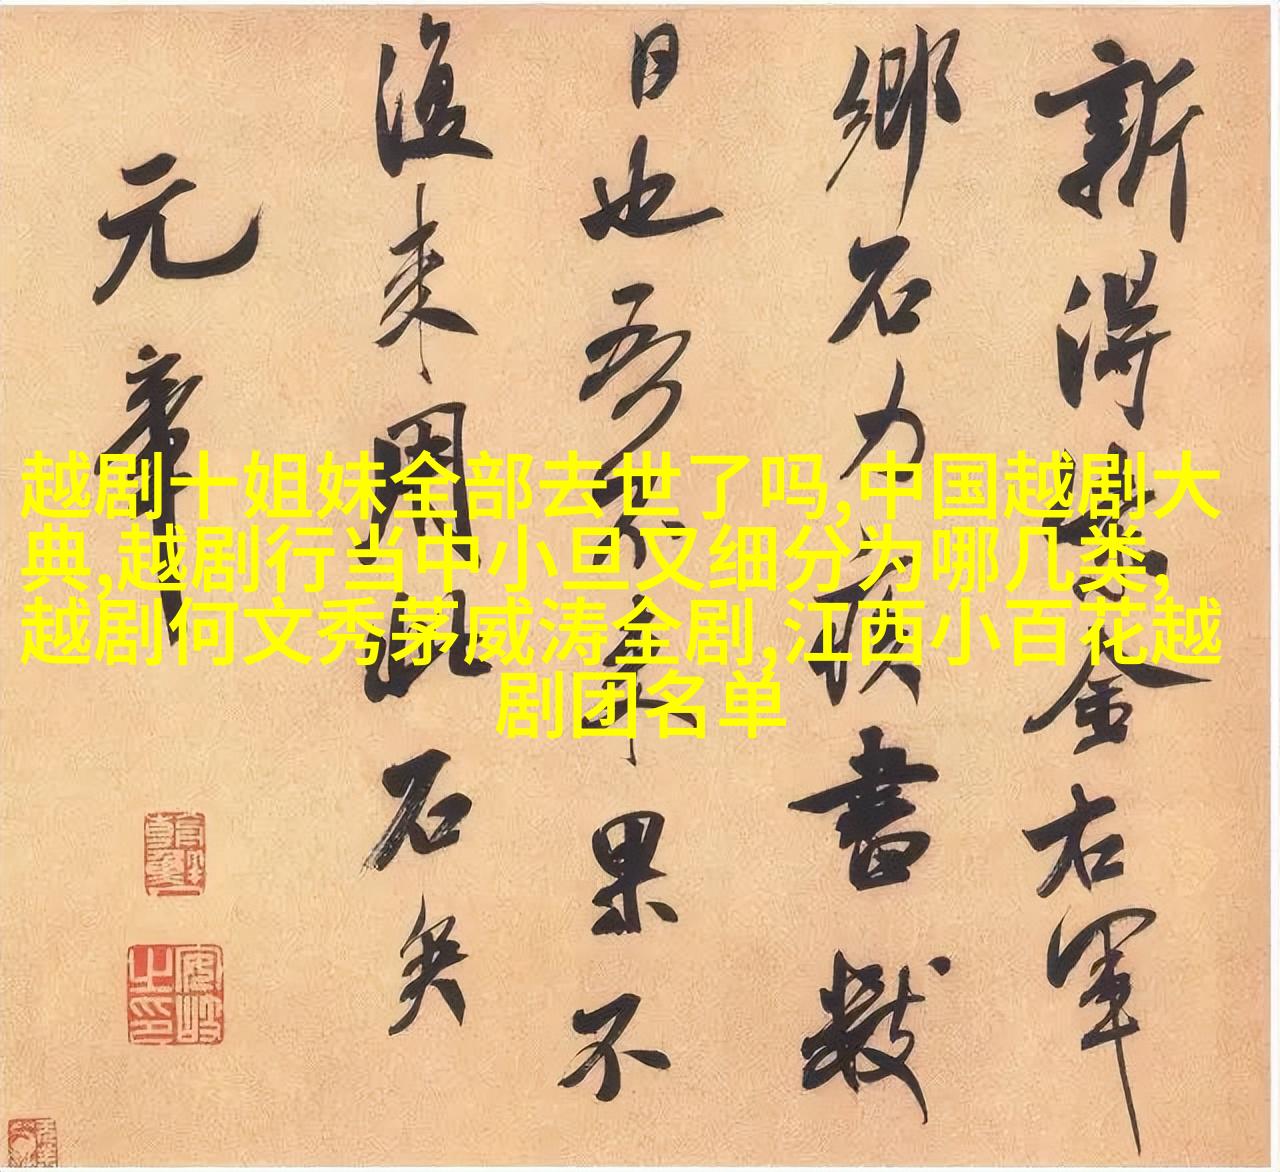 新得紫金右軍
鄉石力疾書數
日也吾不來果不
復來用此石矣
元章
越剧十姐妹全部去世了吗,中国越剧大
典,越剧行当中小旦又细分为哪几类,
越剧何文秀茅威涛全剧,江西小百花越
剧团名单